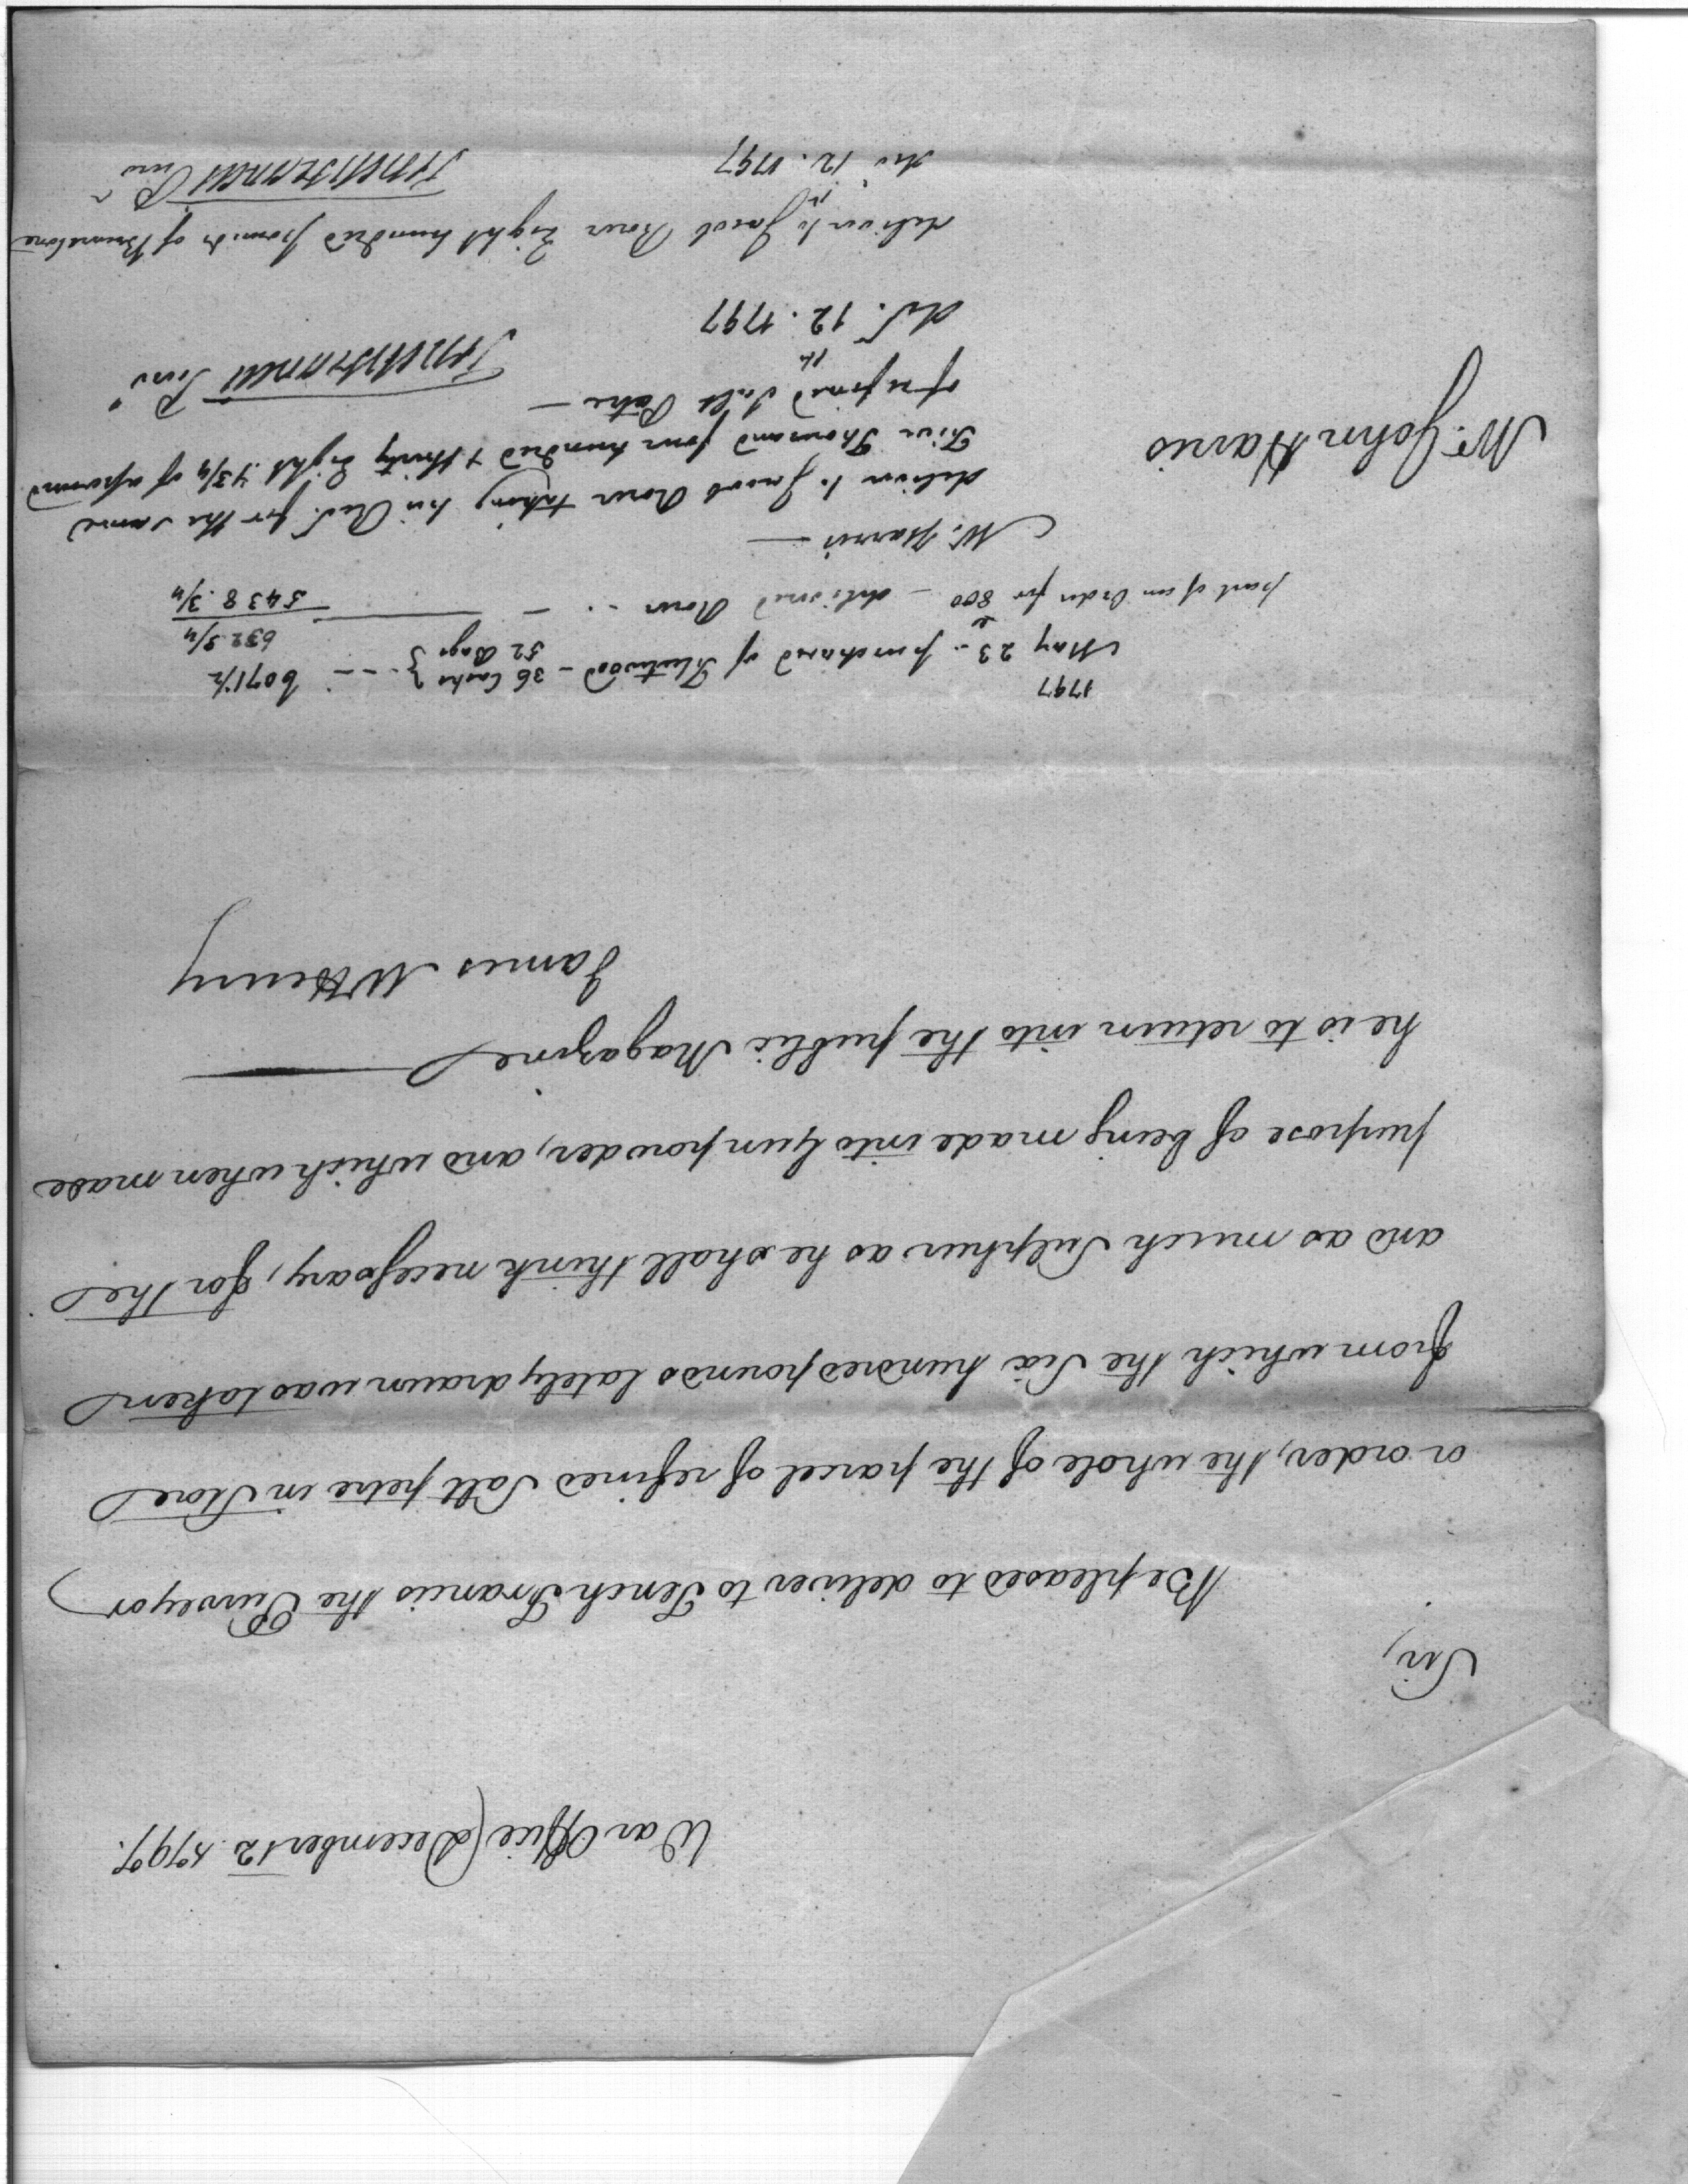 War Office December 12. 1797.
Sir,
Be pleased to deliver to Tench Francis the Purveyor
or order, the whole of the parcel of refined Salt petre in Store
from which the Six hundred pounds lately drawn was taken
and as much Sulphur as he shall think necessary, for the
purpose of being made into Gun powder, and which when made
he is to return into the public Magazine
James McHenry
Mr. John Harris
1797
May 23 - purchased of Fleetwood - 36 Casks } - - - 6071 1/2
52 Bags
632. 3/4
part of an Order for 800 - delivered Rowe - - 5438. 3/4
Mr. Harris —
deliver to Jacob Rowe taking his Rect. for the same
Five Thousand four hundred & thirty Eight 3/4 lb of
of refined Salt Petre —
Tench Francis Purv
Dec. 12. 1797
deliver to Jacob Rowe Eight hundred pounds of Brimstone
Tench Francis Purv
Dec 12. 1797